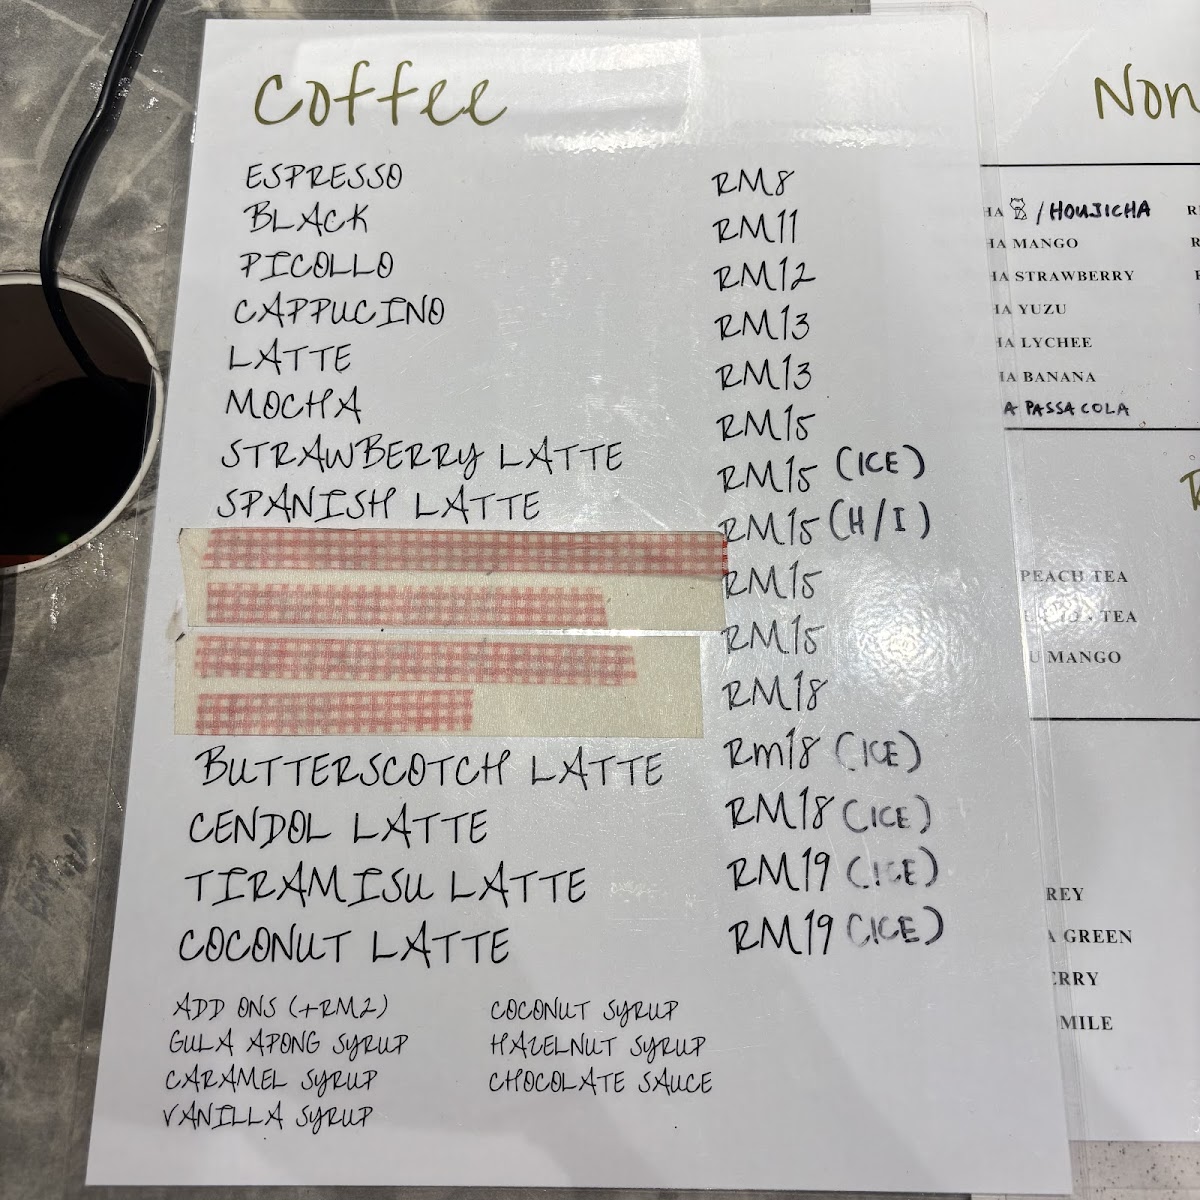 Coffee
ESPRESSO RM8
BLACK RM11
PICOLLO RM12
CAPPUCINO RM13
LATTE RM13
MOCHA RM15
STRAWBERRY LATTE RM15 (ICE)
SPANISH LATTE RM15 (H/I)
RM15
RM15
RM18
BUTTERSCOTCH LATTE Rm18 (ICE)
CENDOL LATTE RM18 (ICE)
TIRAMISU LATTE RM19 (ICE)
COCONUT LATTE RM19 (ICE)
ADD ONS (+RM2)
GULA APONG SYRUP
CARAMEL SYRUP
VANILLA SYRUP
COCONUT SYRUP
HAZELNUT SYRUP
CHOCOLATE SAUCE
Non
HA /HOUJICHA R
HA MANGO R
HA STRAWBERRY
HA YUZU
HA LYCHEE
HA BANANA
A PASSA COLA
PEACH TEA
TEA
U MANGO
REY
A GREEN
ERRY
MILE